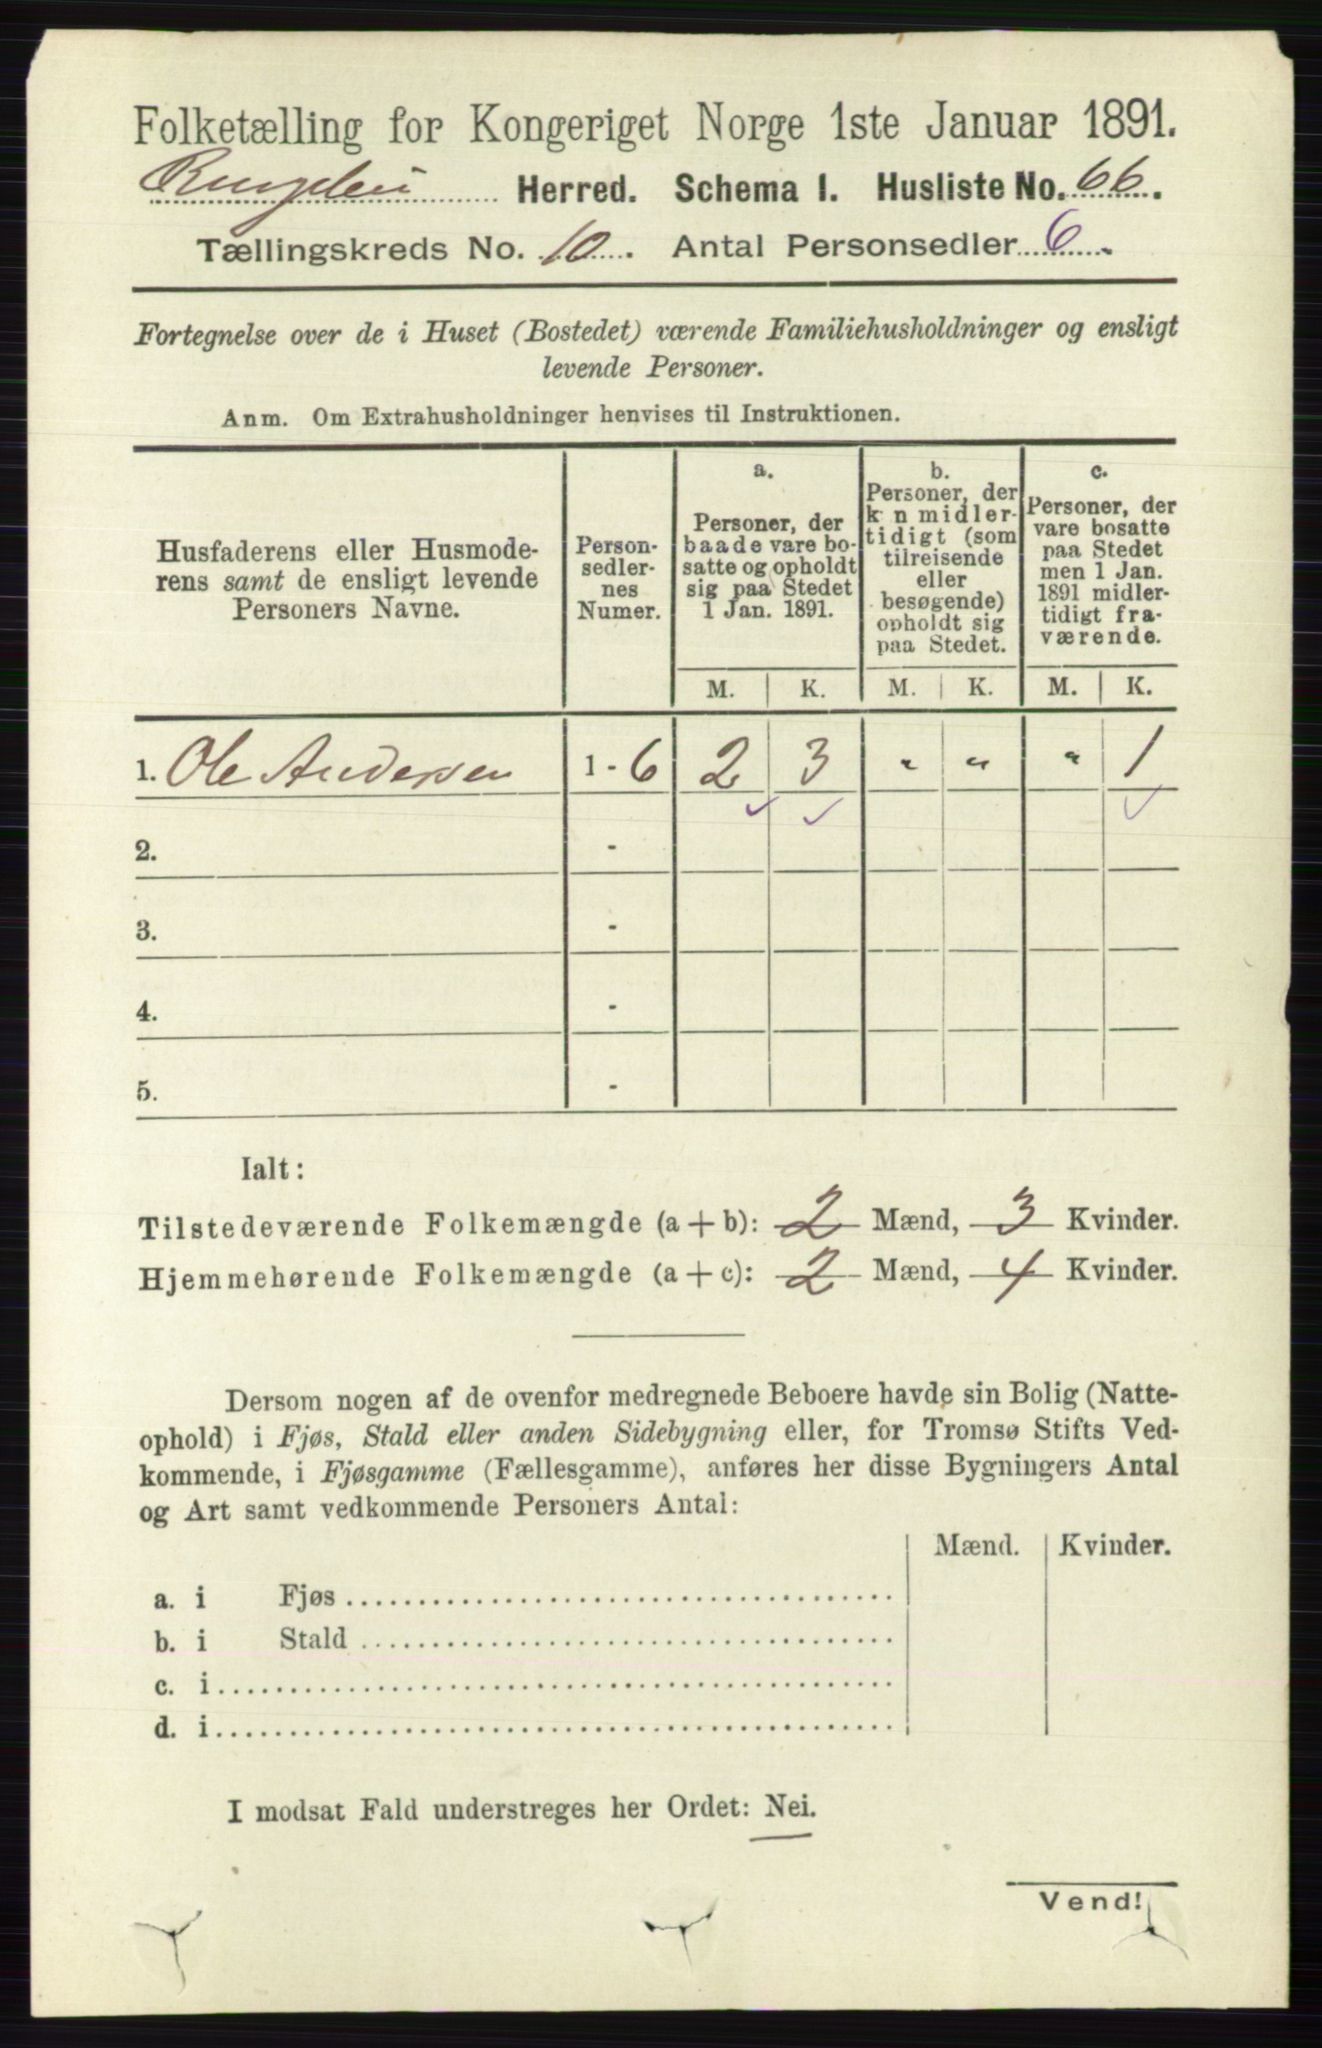 Folketælling for Kongeriget Norge 1ste Januar 1891.
Herred. Schema I. Husliste No. 66.
Tællingskreds No. 10. Antal Personsedler 6.
Fortegnelse over de i Huset (Bostedet) værende Familiehusholdninger og ensligt
levende Personer.
Anm. Om Extrahusholdninger henvises til Instruktionen.
Husfaderens eller Husmode-
rens samt de ensligt levende
Personers Navne.
Person-
sedler-
nes
Numer.
a.
Personer, der
baade vare bo-
satte og opholdt
sig paa Stedet
1 Jan. 1891.
b.
Personer, der
k n midler-
tidigt (som
tilreisende
eller
besøgende)
opholdt sig
paa Stedet.
c.
Personer, der
vare bosatte
paa Stedet
men 1 Jan.
1891 midler-
tidigt fra-
værende.
M. K. M. K. M. K.
1. Ole Andersen 1 - 6 2 3 " " " 1
2. -
3. -
4. -
5. -
Ialt:
Tilstedeværende Folkemængde (a + b): 2 Mænd, 3 Kvinder.
Hjemmehørende Folkemængde (a + c): 2 Mænd, 4 Kvinder.
Dersom nogen af de ovenfor medregnede Beboere havde sin Bolig (Natte-
ophold) i Fjøs, Stald eller anden Sidebygning eller, for Tromsø Stifts Ved-
kommende, i Fjøsgamme (Fællesgamme), anføres her disse Bygningers Antal
og Art samt vedkommende Personers Antal:
Mænd. Kvinder.
a. i Fjøs
b. i Stald
c. i
d. i
I modsat Fald understreges her Ordet: Nei.
Vend!